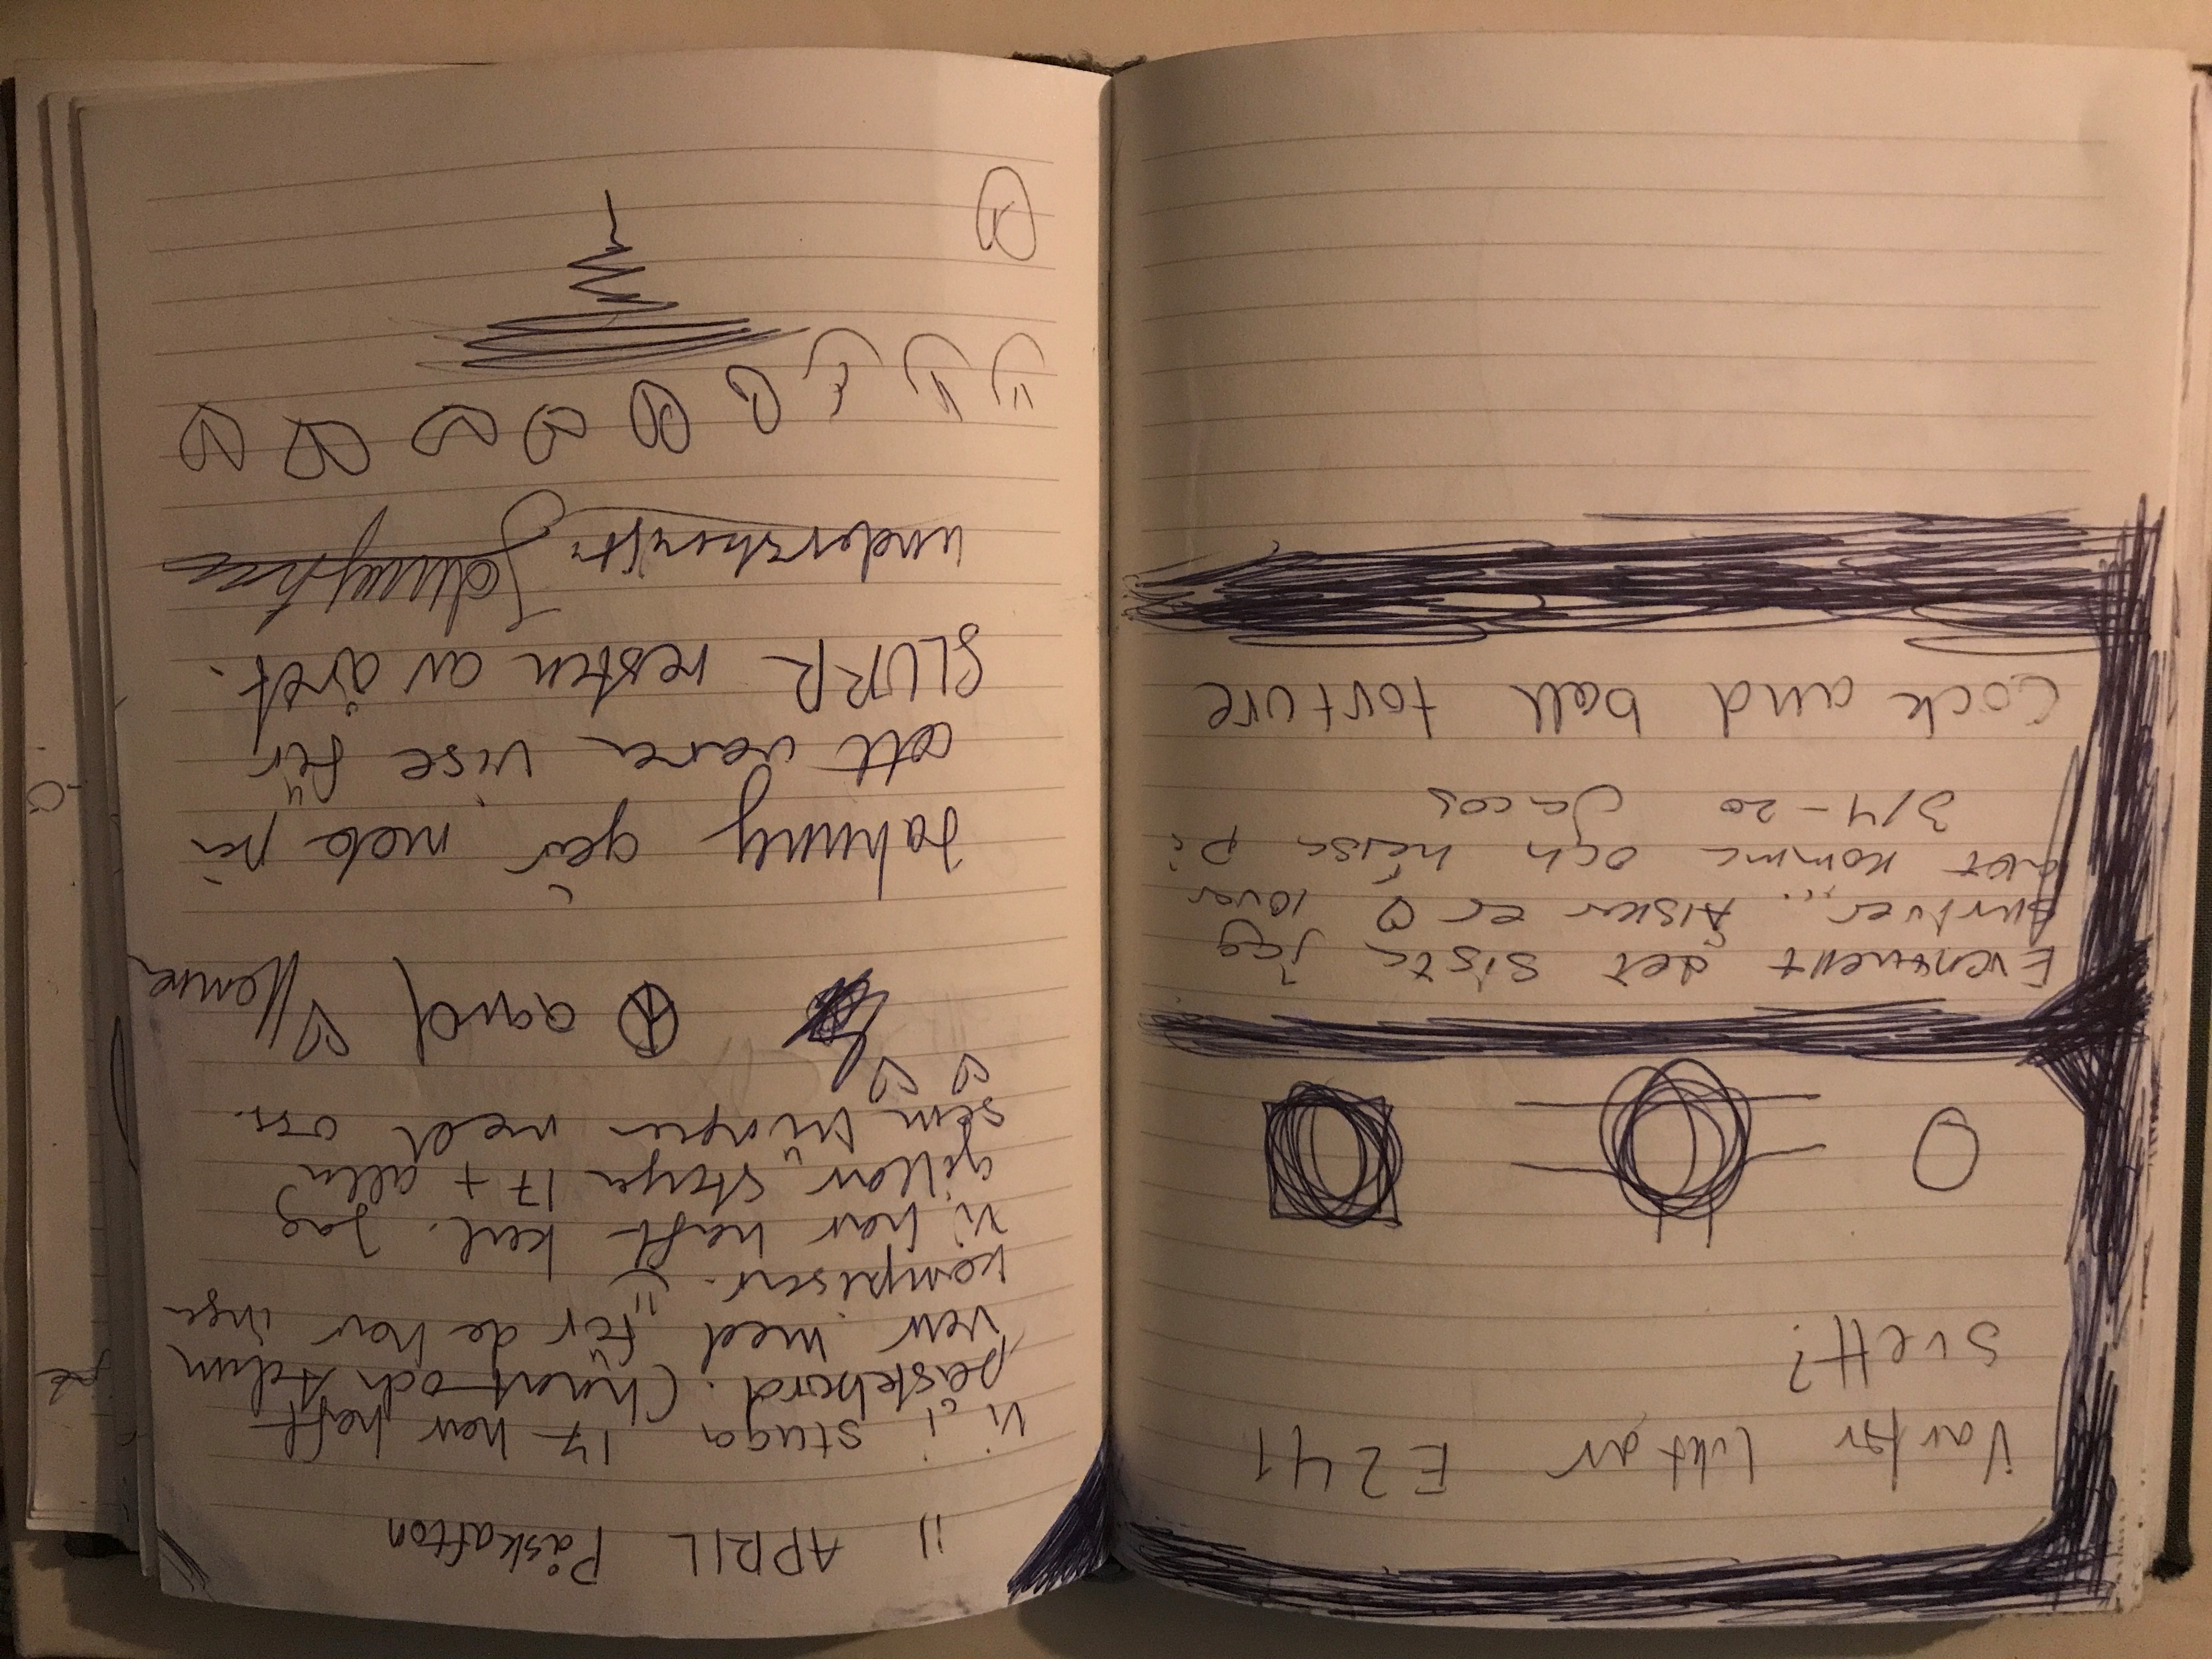 Varför luktar E241
svett?
Eventuellt det sista jag
skriver... Älskar er lovar
att komma och hälsa på
3/4-20 Jacob
Cock and ball torture
11 APRIL Påskafton
Vi i stuga 17 har haft
påskbord. och Adam
var med för de har inga
kompisar.
Vi har haft kul. Jag
gillar stuga 17 + alla
som hänger med oss.
and
Johnny går med på
att vara vise för
SLURR resten av året.
underskrift: